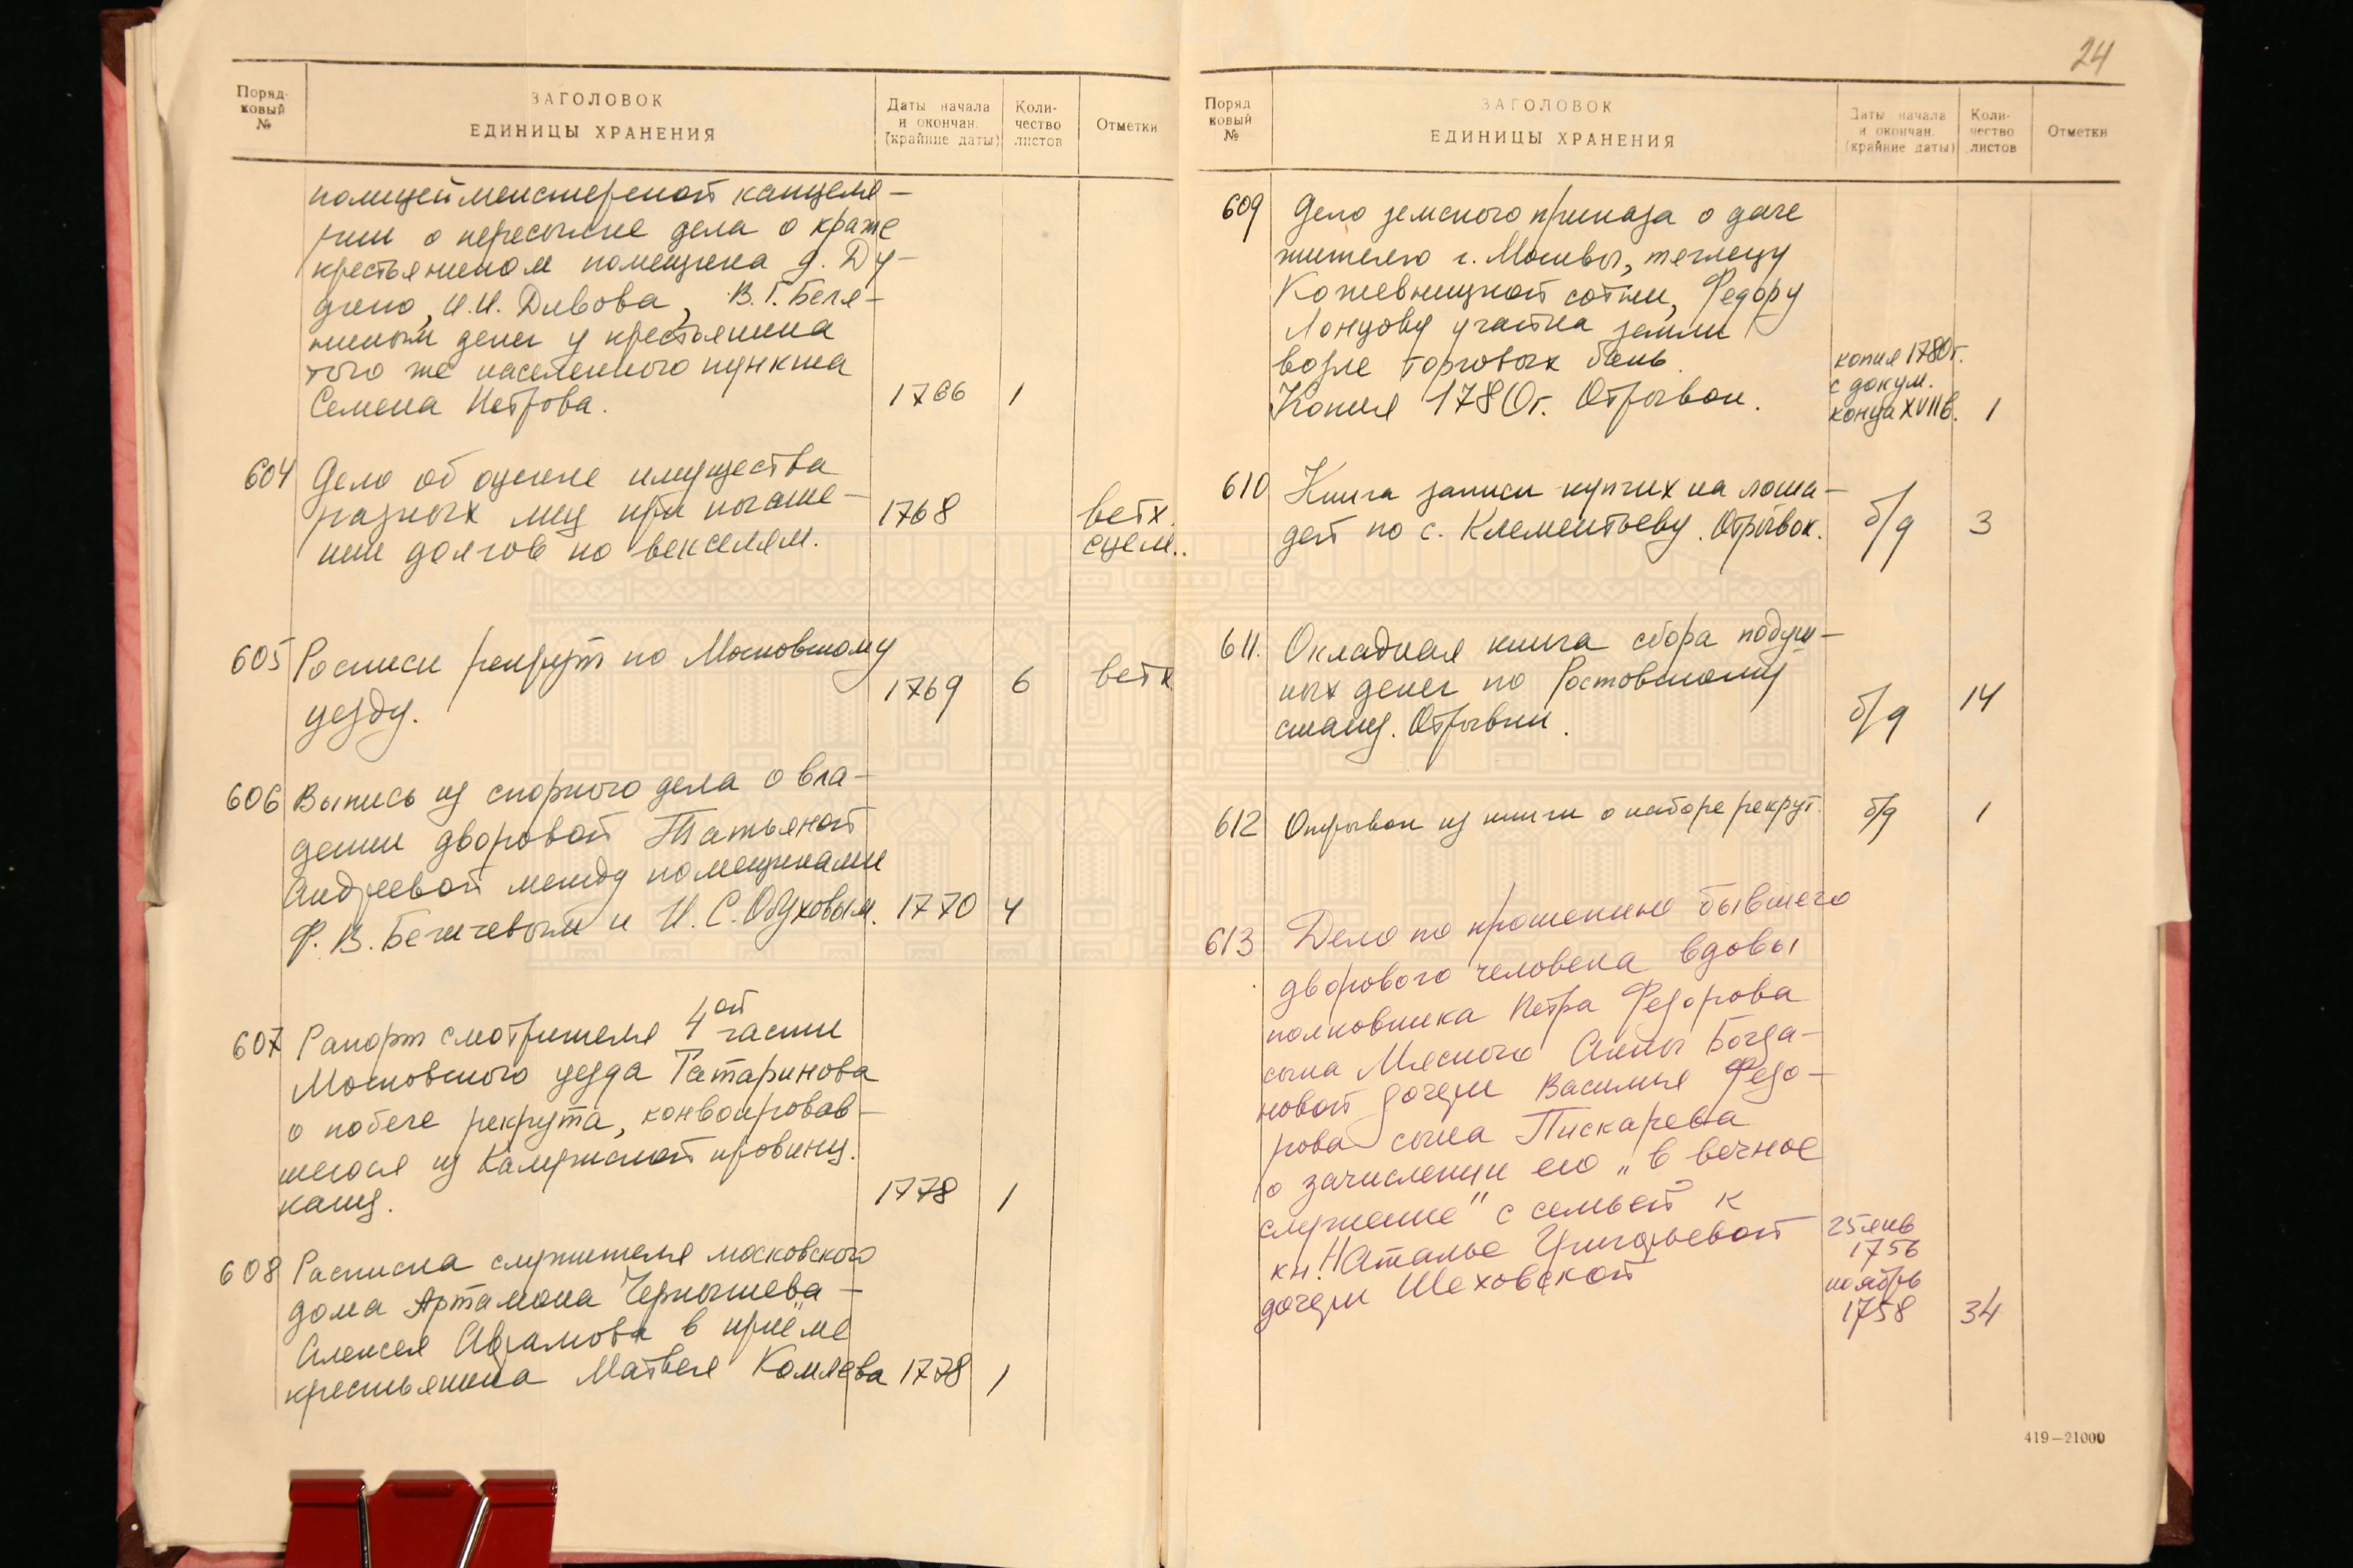 Поряд-
ковый
№
ЗАГОЛОВОК
ЕДИНИЦЫ ХРАНЕНИЯ
Даты начала
и окончан.
(крайние даты)
Коли-
чество
листов
Отметки
полицеймейстерской канцеля-
рии о пересылке дела о краже
крестьянином помещика д. Ду-
дкено, И.И. Дивова, В.Г. Беля-
ниным денег у крестьянина
того же населенного пункта
Семена Петрова.
1766
1
604
Дело об оценке имущества
разных лиц при взыска-
нии долгов по векселям.
1768
ветх.
сцем..
605
Росписи рекрут по Московскому
уезду.
1769
6
ветх.
606
Выпись из спорного дела о вла-
дении дворовой Татьяной
Андреевой между помещиками
Ф. В. Бегичевым и И. С. Обуховым.
1770
4
607
Рапорт смотрителя 4ой части
Московского уезда Татаринова
о побеге рекрута, конвоировав-
шегося из Калужской провинц.
канц.
1778
1
608
Расписка служителя московского
дома Артамона Чернышева -
Алексея Аврамова в приёме
крестьянина Матвея Комлева
1778
1
24
Поряд
ковый
№
ЗАГОЛОВОК
ЕДИНИЦЫ ХРАНЕНИЯ
Даты начала
и окончан.
(крайние даты)
Коли-
чество
листов
Отметки
609
Дело земского приказа о даче
жителю г. Москвы, теглецу
Кожевницкой сотни, Федору
Лонцову участка земли
возле торговых бань.
Копия 1780г. Отрывок.
копия 1780г.
с докум.
конца XVIIв.
1
610
Книга записи купчих на лоша-
дей по с. Клементьеву. Отрывок.
б/д
3
611.
Окладная книга сбора подуш-
ных денег по Ростовскому
стану. Отрывки.
б/д
14
612
Отрывок из книги о наборе рекрут.
б/д
1
613
Дело по прошению бывшего
дворового человека вдовы
полковника Петра Федорова
сына Мясного Анны Богда-
новой дочери Василья Федо-
рова сына Пискарева
о зачислении его „в вечное
служение" с семьей к
кн. Наталье Григорьевой
дочери Шеховской
25 янв
1756
ноябрь
1758
34
419—21000